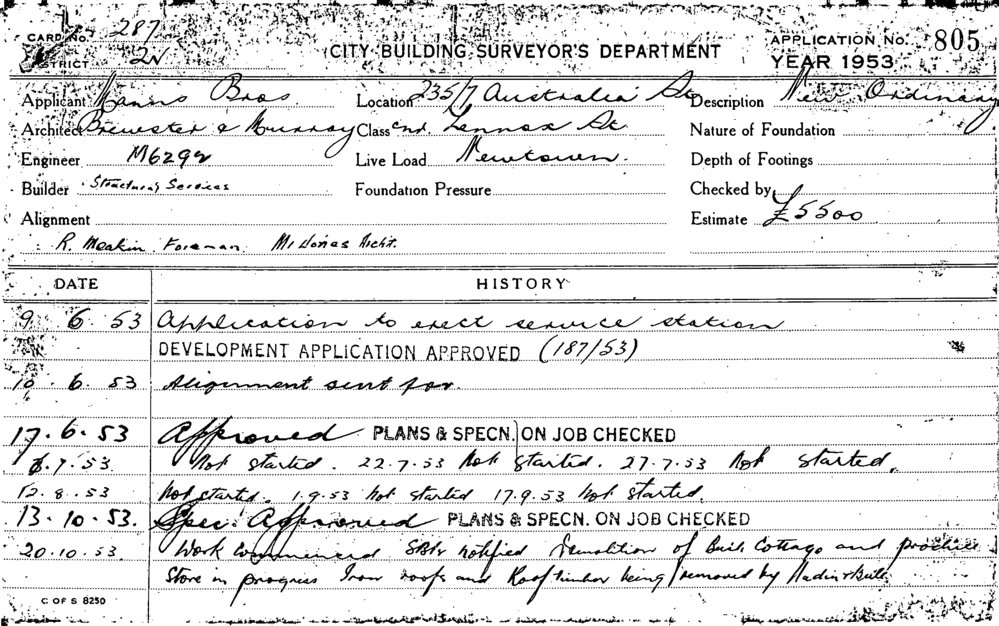 CARD No. 287
DISTRICT 2N
CITY BUILDING SURVEYOR'S DEPARTMENT
APPLICATION No. 805
YEAR 1953
Applicant Bros Location 235/7 Australia St Description New Ordinary
Architect Brewster & Murray Class cnr. Lennox St. Nature of Foundation
Engineer M6292 Live Load Newtown. Depth of Footings
Builder Structural Services Foundation Pressure Checked by
Alignment Estimate £5500
R. Meakin Foreman Mr Jones Archt.
DATE HISTORY
9 6 53 Application to erect service station
DEVELOPMENT APPLICATION APPROVED (187/53)
10 . 6 . 53 Alignment sent for
17 . 6 . 53 Approved PLANS & SPECN. ON JOB CHECKED
7 . 53 Not started. 22.7.53 Not started. 27.7.53 Not started.
12 . 8 . 53 Not started. 1.9.53 Not started 17.9.53 Not started.
13 . 10 . 53. Spec. Approved PLANS & SPECN. ON JOB CHECKED
20 . 10 . 53 Work Commenced notified Demolition of Cottage and produce
Store in progress Iron roofs and Roof timber being removed by
C OF S 8250